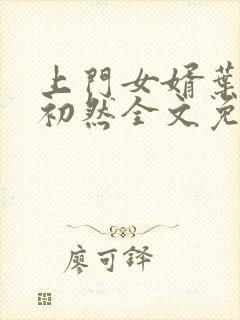 上門女婿葉
初然全文免
廖可铎